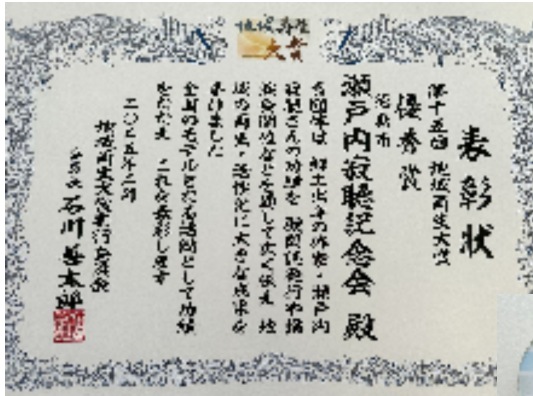 地域再生
大賞
表彰状
第十五回 地域再生大賞
優秀賞
徳島市
瀬戸内寂聴記念会 殿
貴団体は 郷土出身の作家・瀬戸内
寂聴さんの功績を 機関誌発行や
を通して広く伝え 地
域の再生・活性化に大きな成果を
挙げました
全国のモデルとなる活動として功績
をたたえ これを表彰します
二〇二五年二月
地域再生大賞実行委員会
石川